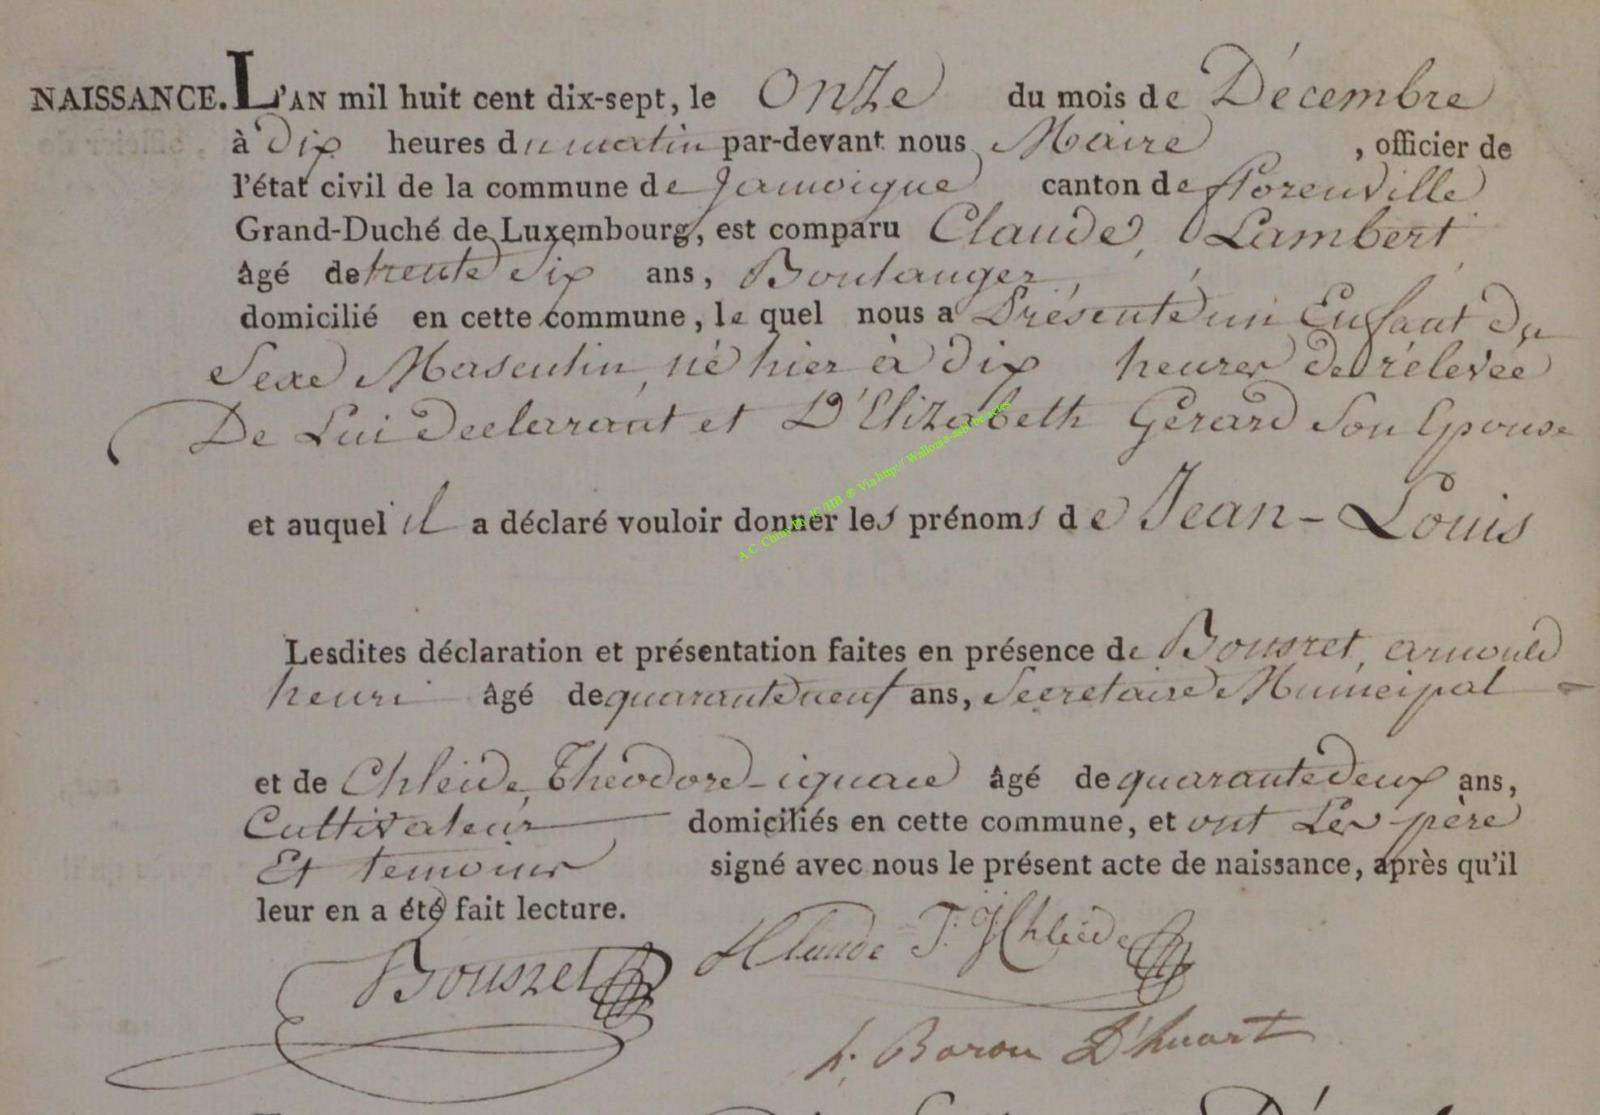 NAISSANCE. L'AN mil huit cent dix-sept, le Onze du mois de Décembre
à dix heures du matin par-devant nous Maire , officier de
l'état civil de la commune de Jamoigne canton de florenville
Grand-Duché de Luxembourg, est comparu Claude, Lambert
âgé de trente Six ans, Boulanger,
domicilié en cette commune, le quel nous a Présenté un Enfant du
Sexe Masculin, né hier à dix heures de rélevée
De Lui Declarant et D'Elizabeth Gérard Son Epouse
et auquel il a déclaré vouloir donner les prénoms de Jean-Louis
Lesdites déclaration et présentation faites en présence de Bousret, arnould
henri âgé de quarante neuf ans, Secretaire Municipal
et de Chleide, Theodore-ignace âgé de quarante deux ans,
Cultivateur domiciliés en cette commune, et ont Les père
Et temoins signé avec nous le présent acte de naissance, après qu'il
leur en a été fait lecture.
Bousret Claude T. J Chleide
h: Baron D'huart